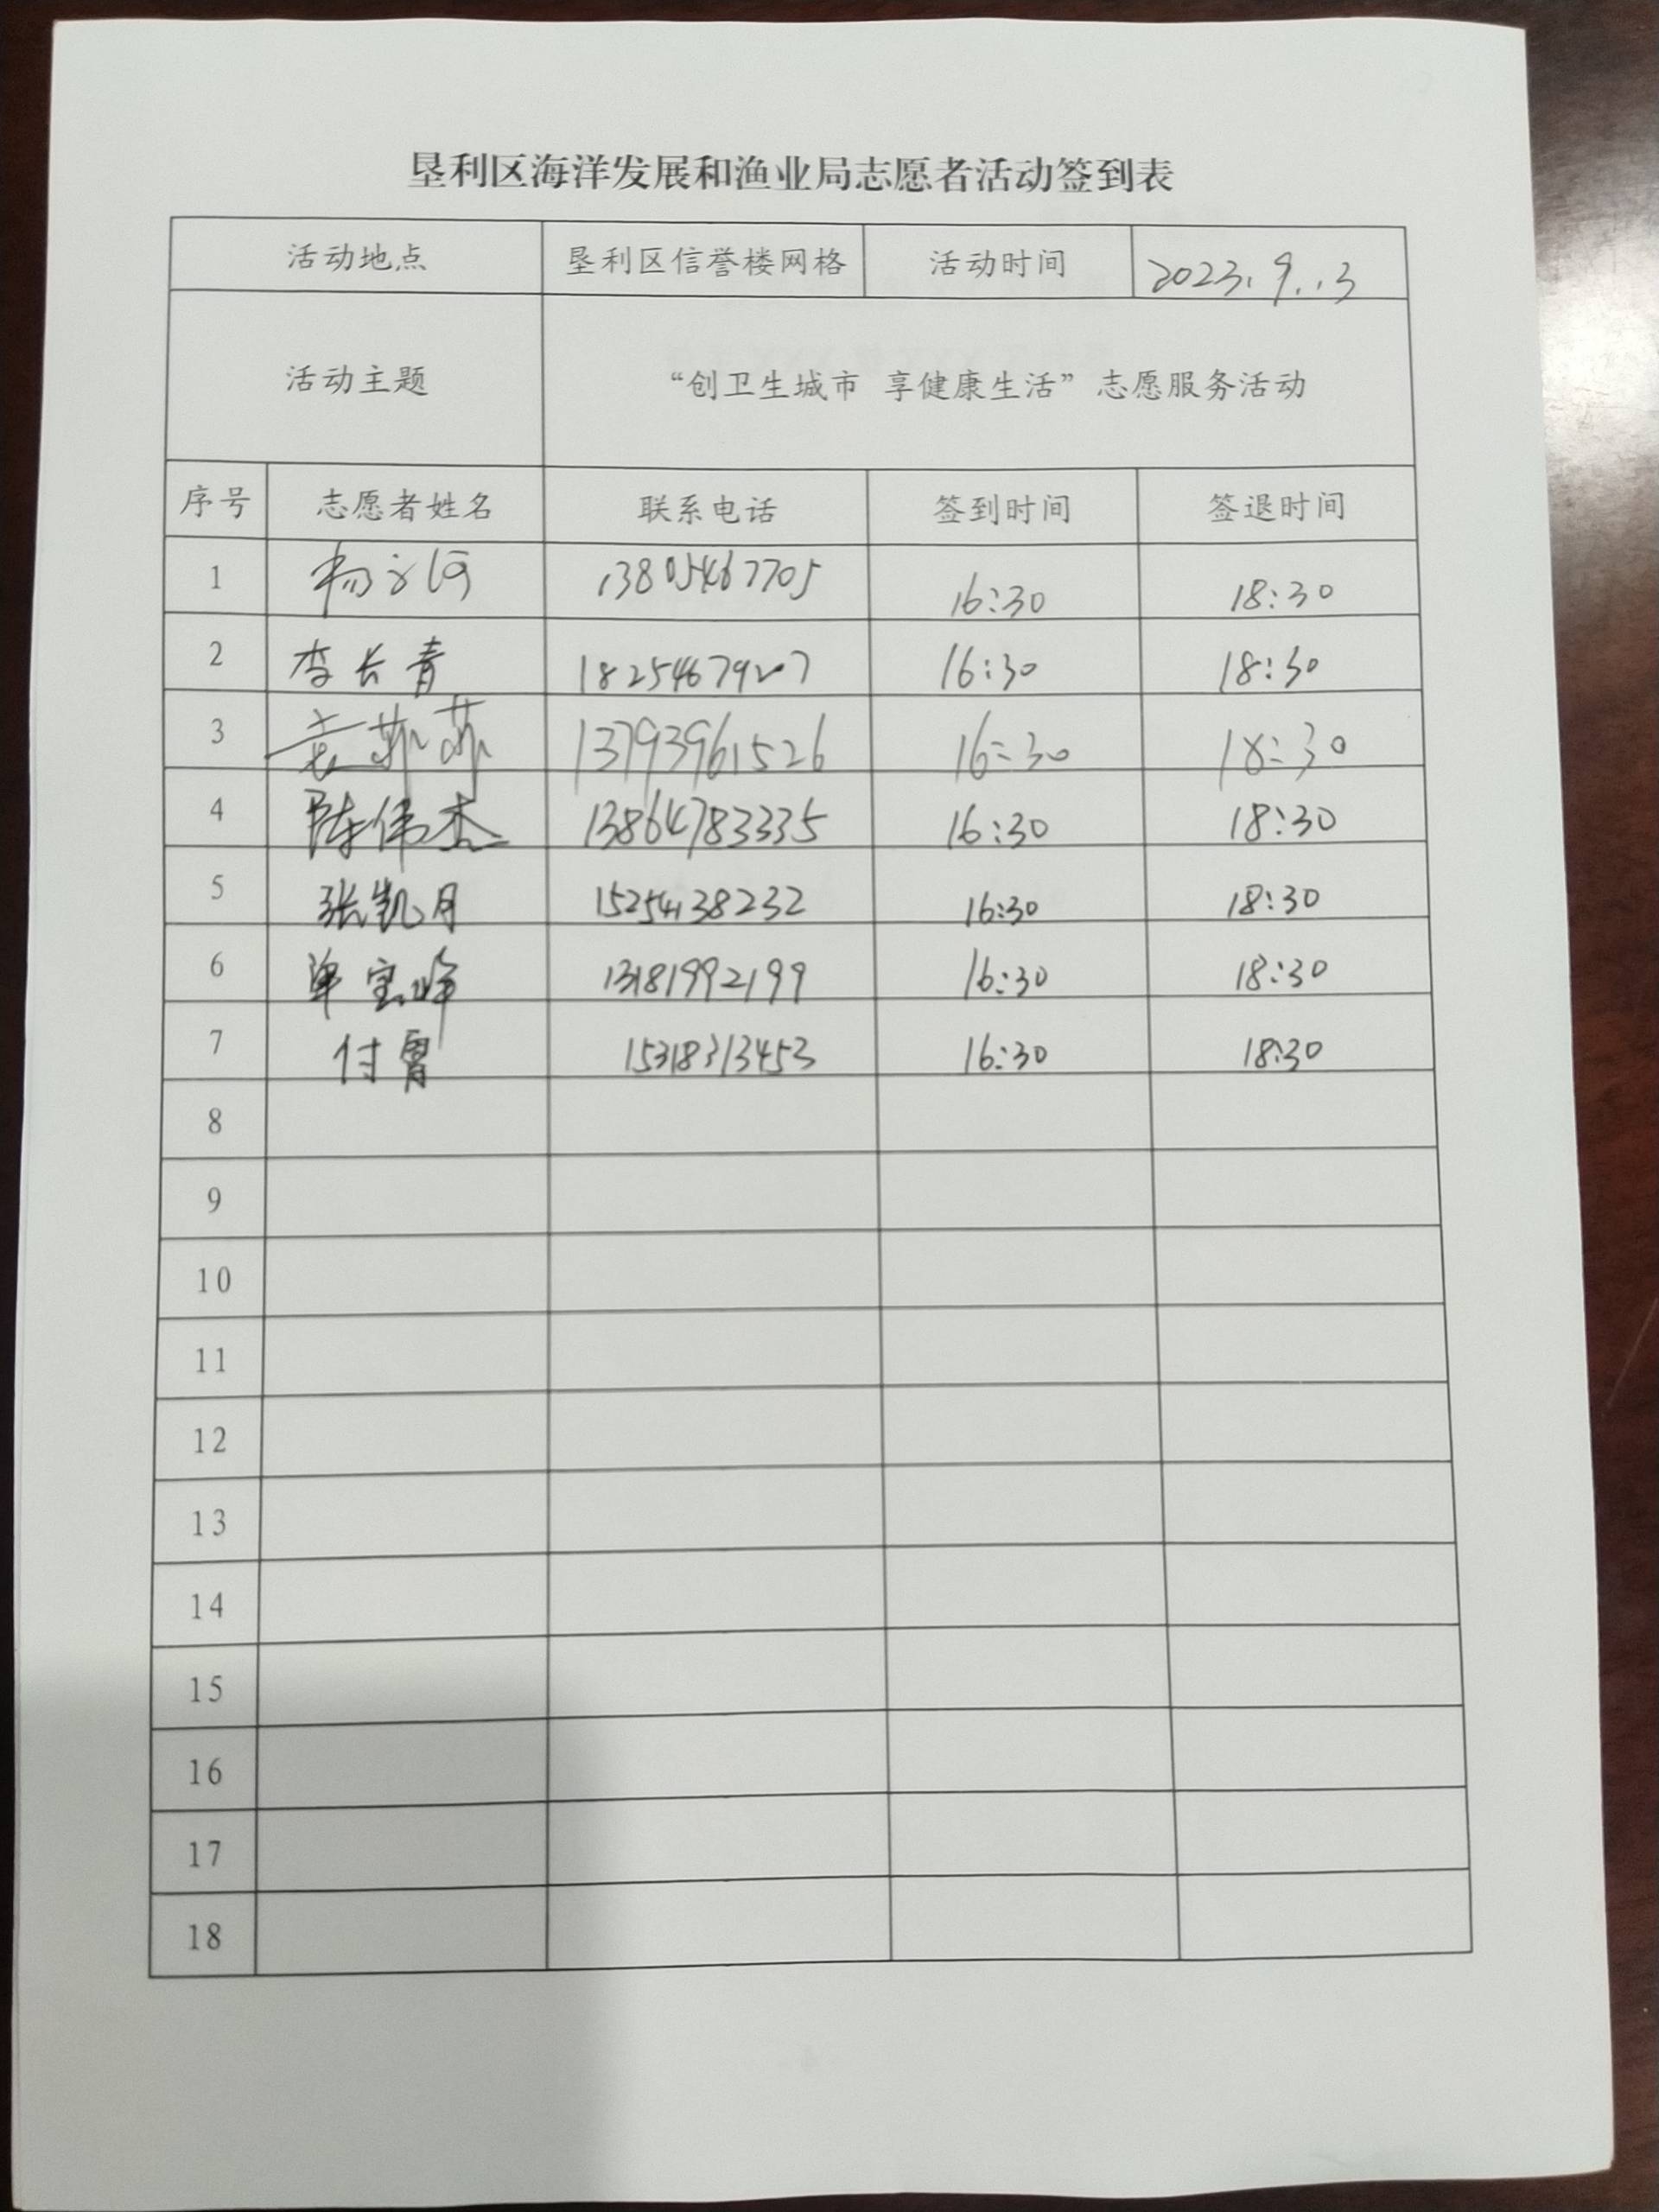 垦利区海洋发展和渔业局志愿者活动签到表
活动地点 垦利区信誉楼网格 活动时间 2023.9..3
活动主题 “创卫生城市 享健康生活”志愿服务活动
序号 志愿者姓名 联系电话 签到时间 签退时间
1 13805467705 16:30 18:30
2 李长青 18254679207 16:30 18:30
3 袁菲菲 13793961526 16:30 18:30
4 陈伟杰 13864783335 16:30 18:30
5 张凯月 15254138232 16:30 18:30
6 单宝峰 13181992199 16:30 18:30
7 付霄 15318313453 16:30 18:30
8
9
10
11
12
13
14
15
16
17
18